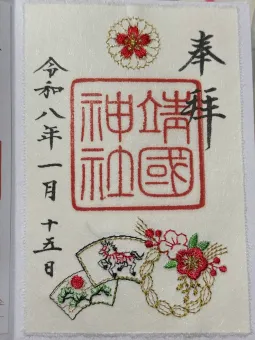 奉拝
靖國
神社
令和八年一月十五日